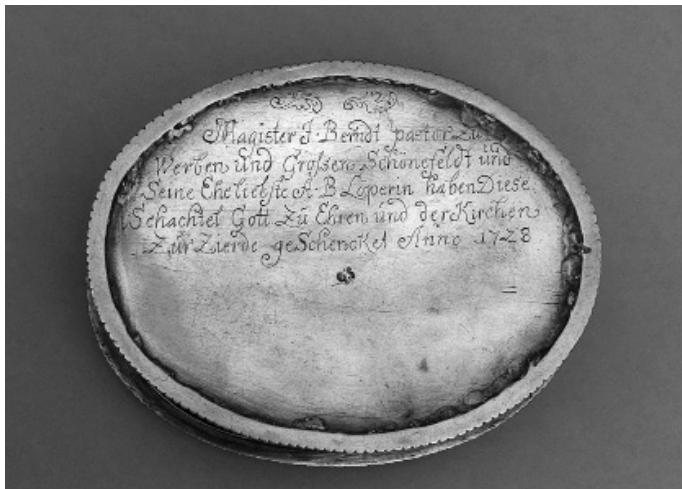 Magister J. Berndt pastor zu
Werben und Großen Schönefeldt und
Seine Eheliebste A. B. Löperin haben Diese
Schachtel Gott zu Ehren und der Kirchen
Zur Zierde geSchencket Anno 1728